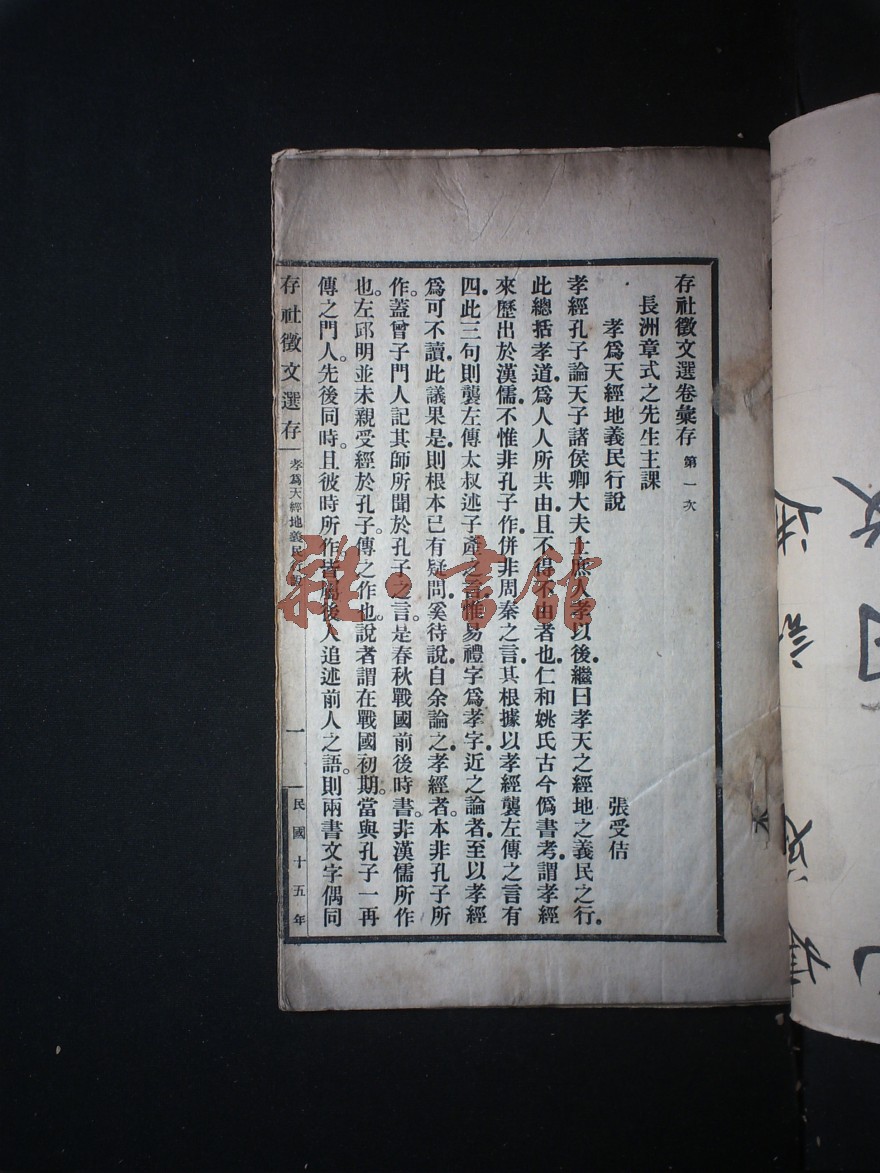 存社徵文選卷彙存 第一次
長洲章式之先生主課
孝爲天經地義民行說 張受佶
孝經孔子論天子諸侯卿大夫士庶人孝以後。繼曰孝天之經地之義民之行。
此總括孝道。爲人人所共由。且不得不由者也。仁和姚氏古今僞書考。謂孝經
來歷出於漢儒。不惟非孔子作。併非周秦之言。其根據以孝經襲左傳之言有
四。此三句則襲左傳太叔述子產之言。惟易禮字爲孝字。近之論者。至以孝經
爲可不讀。此議果是。則根本已有疑問。奚待說。自余論之。孝經者。本非孔子所
作。蓋曾子門人記其師所聞於孔子之言。是春秋戰國前後時書。非漢儒所作
也。左邱明並未親受經於孔子。傳之作也。說者謂在戰國初期。當與孔子一再
傳之門人。先後同時。且彼時所作。皆屬後人追述前人之語。則兩書文字偶同
存社徵文選存 孝爲天經地義民行說 一 民國十五年
雜·書館